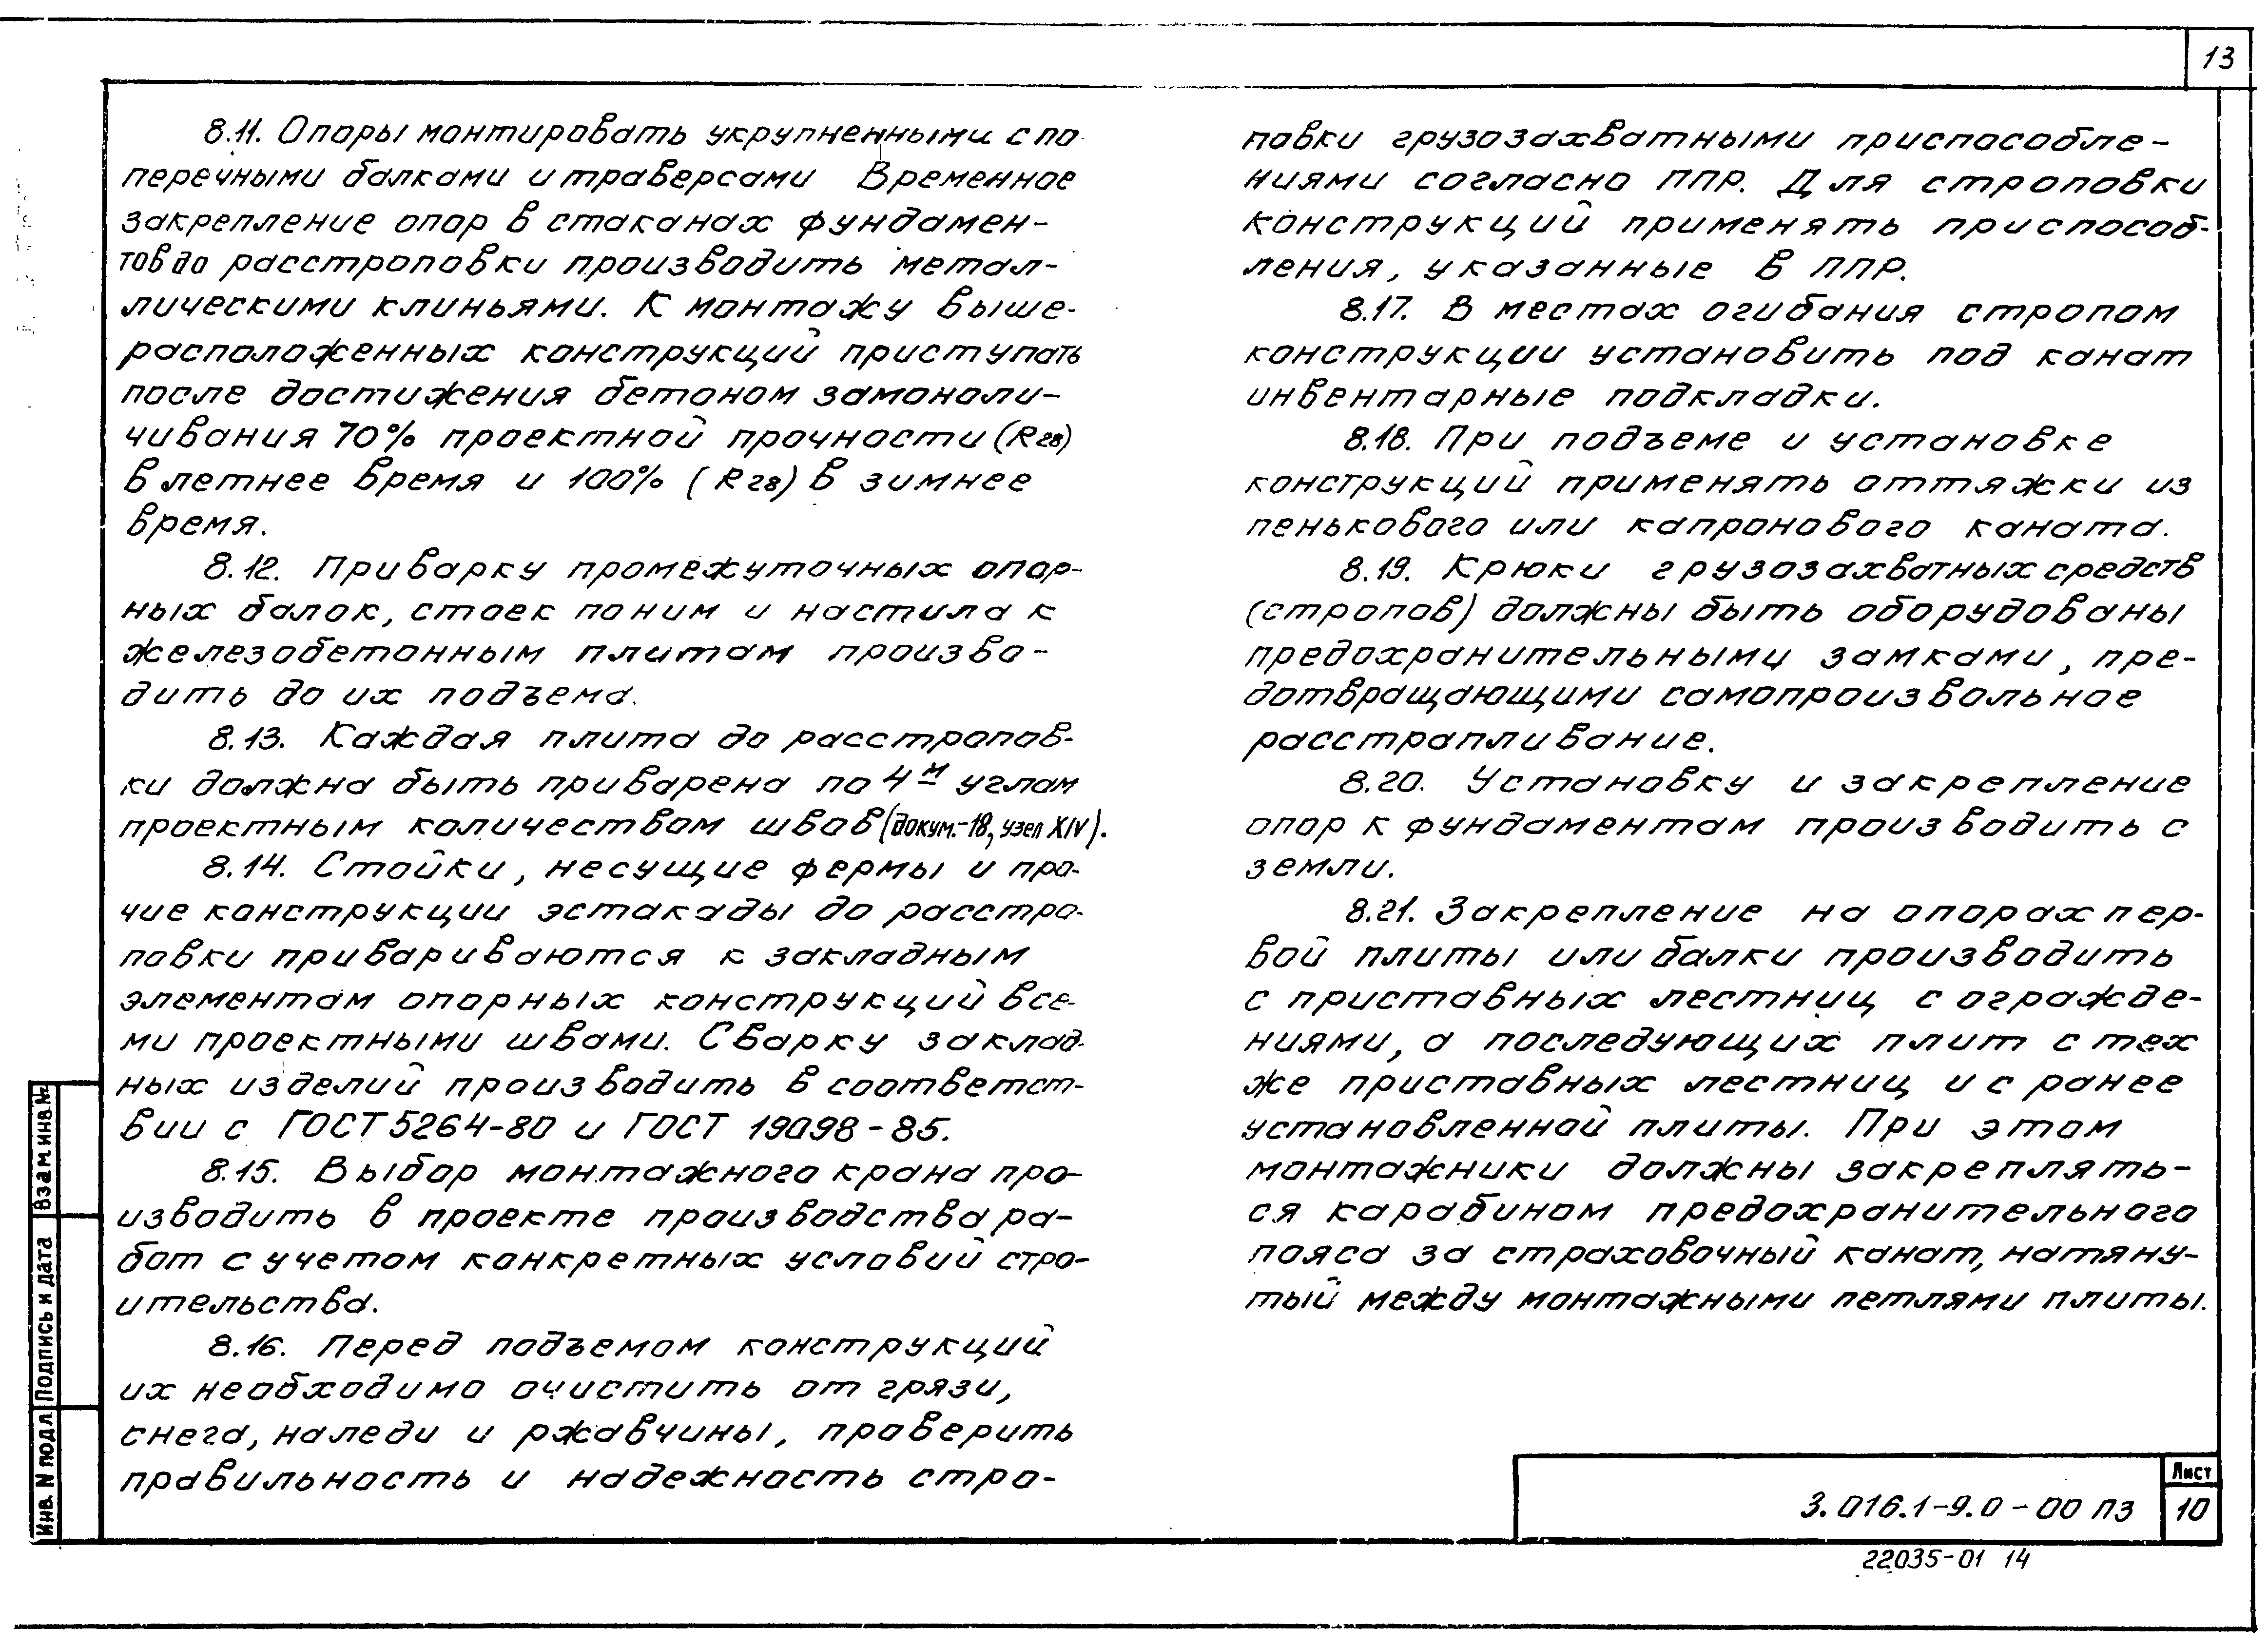 13
8.11. Опоры монтировать укрупненными с по-
перечными балками и траверсами Временное
закрепление опор в стаканах фундамен-
тов до расстроповки производить метал-
лическими клиньями. К монтажу выше-
расположенных конструкций приступать
после достижения бетоном замоноли-
чивания 70% проектной прочности (R28)
в летнее время и 100% (R28) в зимнее
время.
8.12. Приварку промежуточных опор-
ных балок, стоек по ним и настила к
железобетонным плитам произво-
дить до их подъема.
8.13. Каждая плита до расстропов-
ки должна быть приварена по 4м углам
проектным количеством швов (докум.-18, узел XIV).
8.14. Стойки, несущие фермы и про-
чие конструкции эстакады до расстро-
повки привариваются к закладным
элементам опорных конструкций все-
ми проектными швами. Сварку заклад-
ных изделий производить в соответст-
вии с ГОСТ 5264-80 и ГОСТ 19098-85.
8.15. Выбор монтажного крана про-
изводить в проекте производства ра-
бот с учетом конкретных условий стро-
ительства.
8.16. Перед подъемом конструкций
их необходимо очистить от грязи,
снега, наледи и ржавчины, проверить
правильность и надежность стро-
повки грузозахватными приспособле-
ниями согласно ППР. Для строповки
конструкций применять приспособ-
ления, указанные в ППР.
8.17. В местах огибания стропом
конструкции установить под канат
инвентарные подкладки.
8.18. При подъеме и установке
конструкций применять оттяжки из
пенькового или капронового каната.
8.19. Крюки грузозахватных средств
(стропов) должны быть оборудованы
предохранительными замками, пре-
дотвращающими самопроизвольное
расстрапливание.
8.20. Установку и закрепление
опор к фундаментам производить с
земли.
8.21. Закрепление на опорах пер-
вой плиты или балки производить
с приставных лестниц с огражде-
ниями, а последующих плит с тех
же приставных лестниц и с ранее
установленной плиты. При этом
монтажники должны закреплять-
ся карабином предохранительного
пояса за страховочный канат, натяну-
тый между монтажными петлями плиты.
Взам. инв. №
Подпись и дата
Инв. N подл
3.016.1-9.0-00 ПЗ
Лист
10
22035-01 14